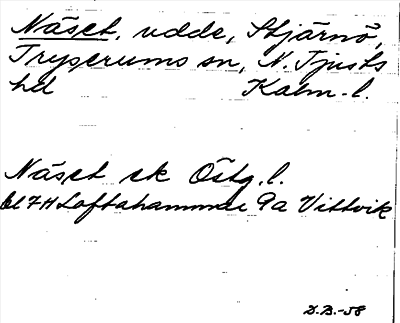 Näset, udde, Stjärnö,
Tryserums sn, N. Tjusts
hd Kalm. l.
Näset ek Östg. l.
bl 7H Loftahammar 9a Vittvik
D.B.-58